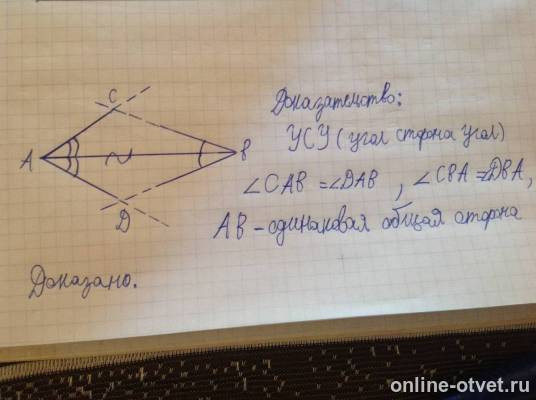 Доказательство:
УСУ (угол сторона угол)
∠CAB = ∠DAB , ∠CBA = ∠DBA,
AB – одинаковая общая сторона
C
A
B
D
Доказано.
online-otvet.ru